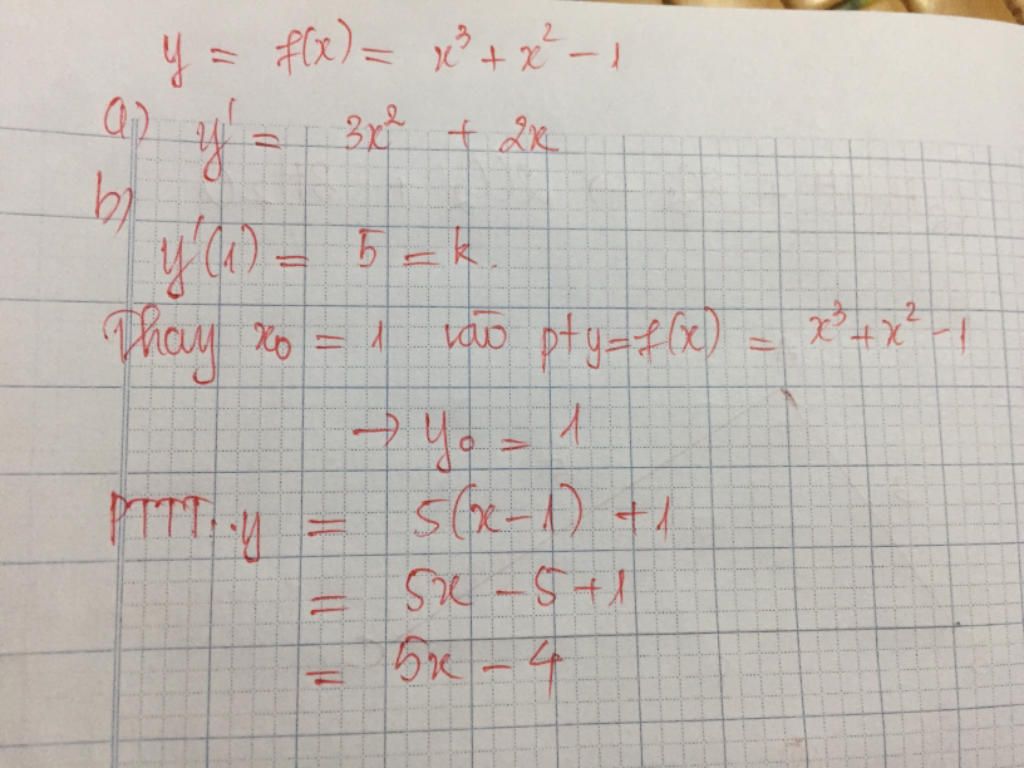 y = f(x) = x³ + x² - 1
a) y' = 3x² + 2x
b)
y'(1) = 5 = k.
Thay x₀ = 1 vào pt y = f(x) = x³ + x² - 1
→ y₀ = 1
PTTT: y = 5(x - 1) + 1
= 5x - 5 + 1
= 5x - 4